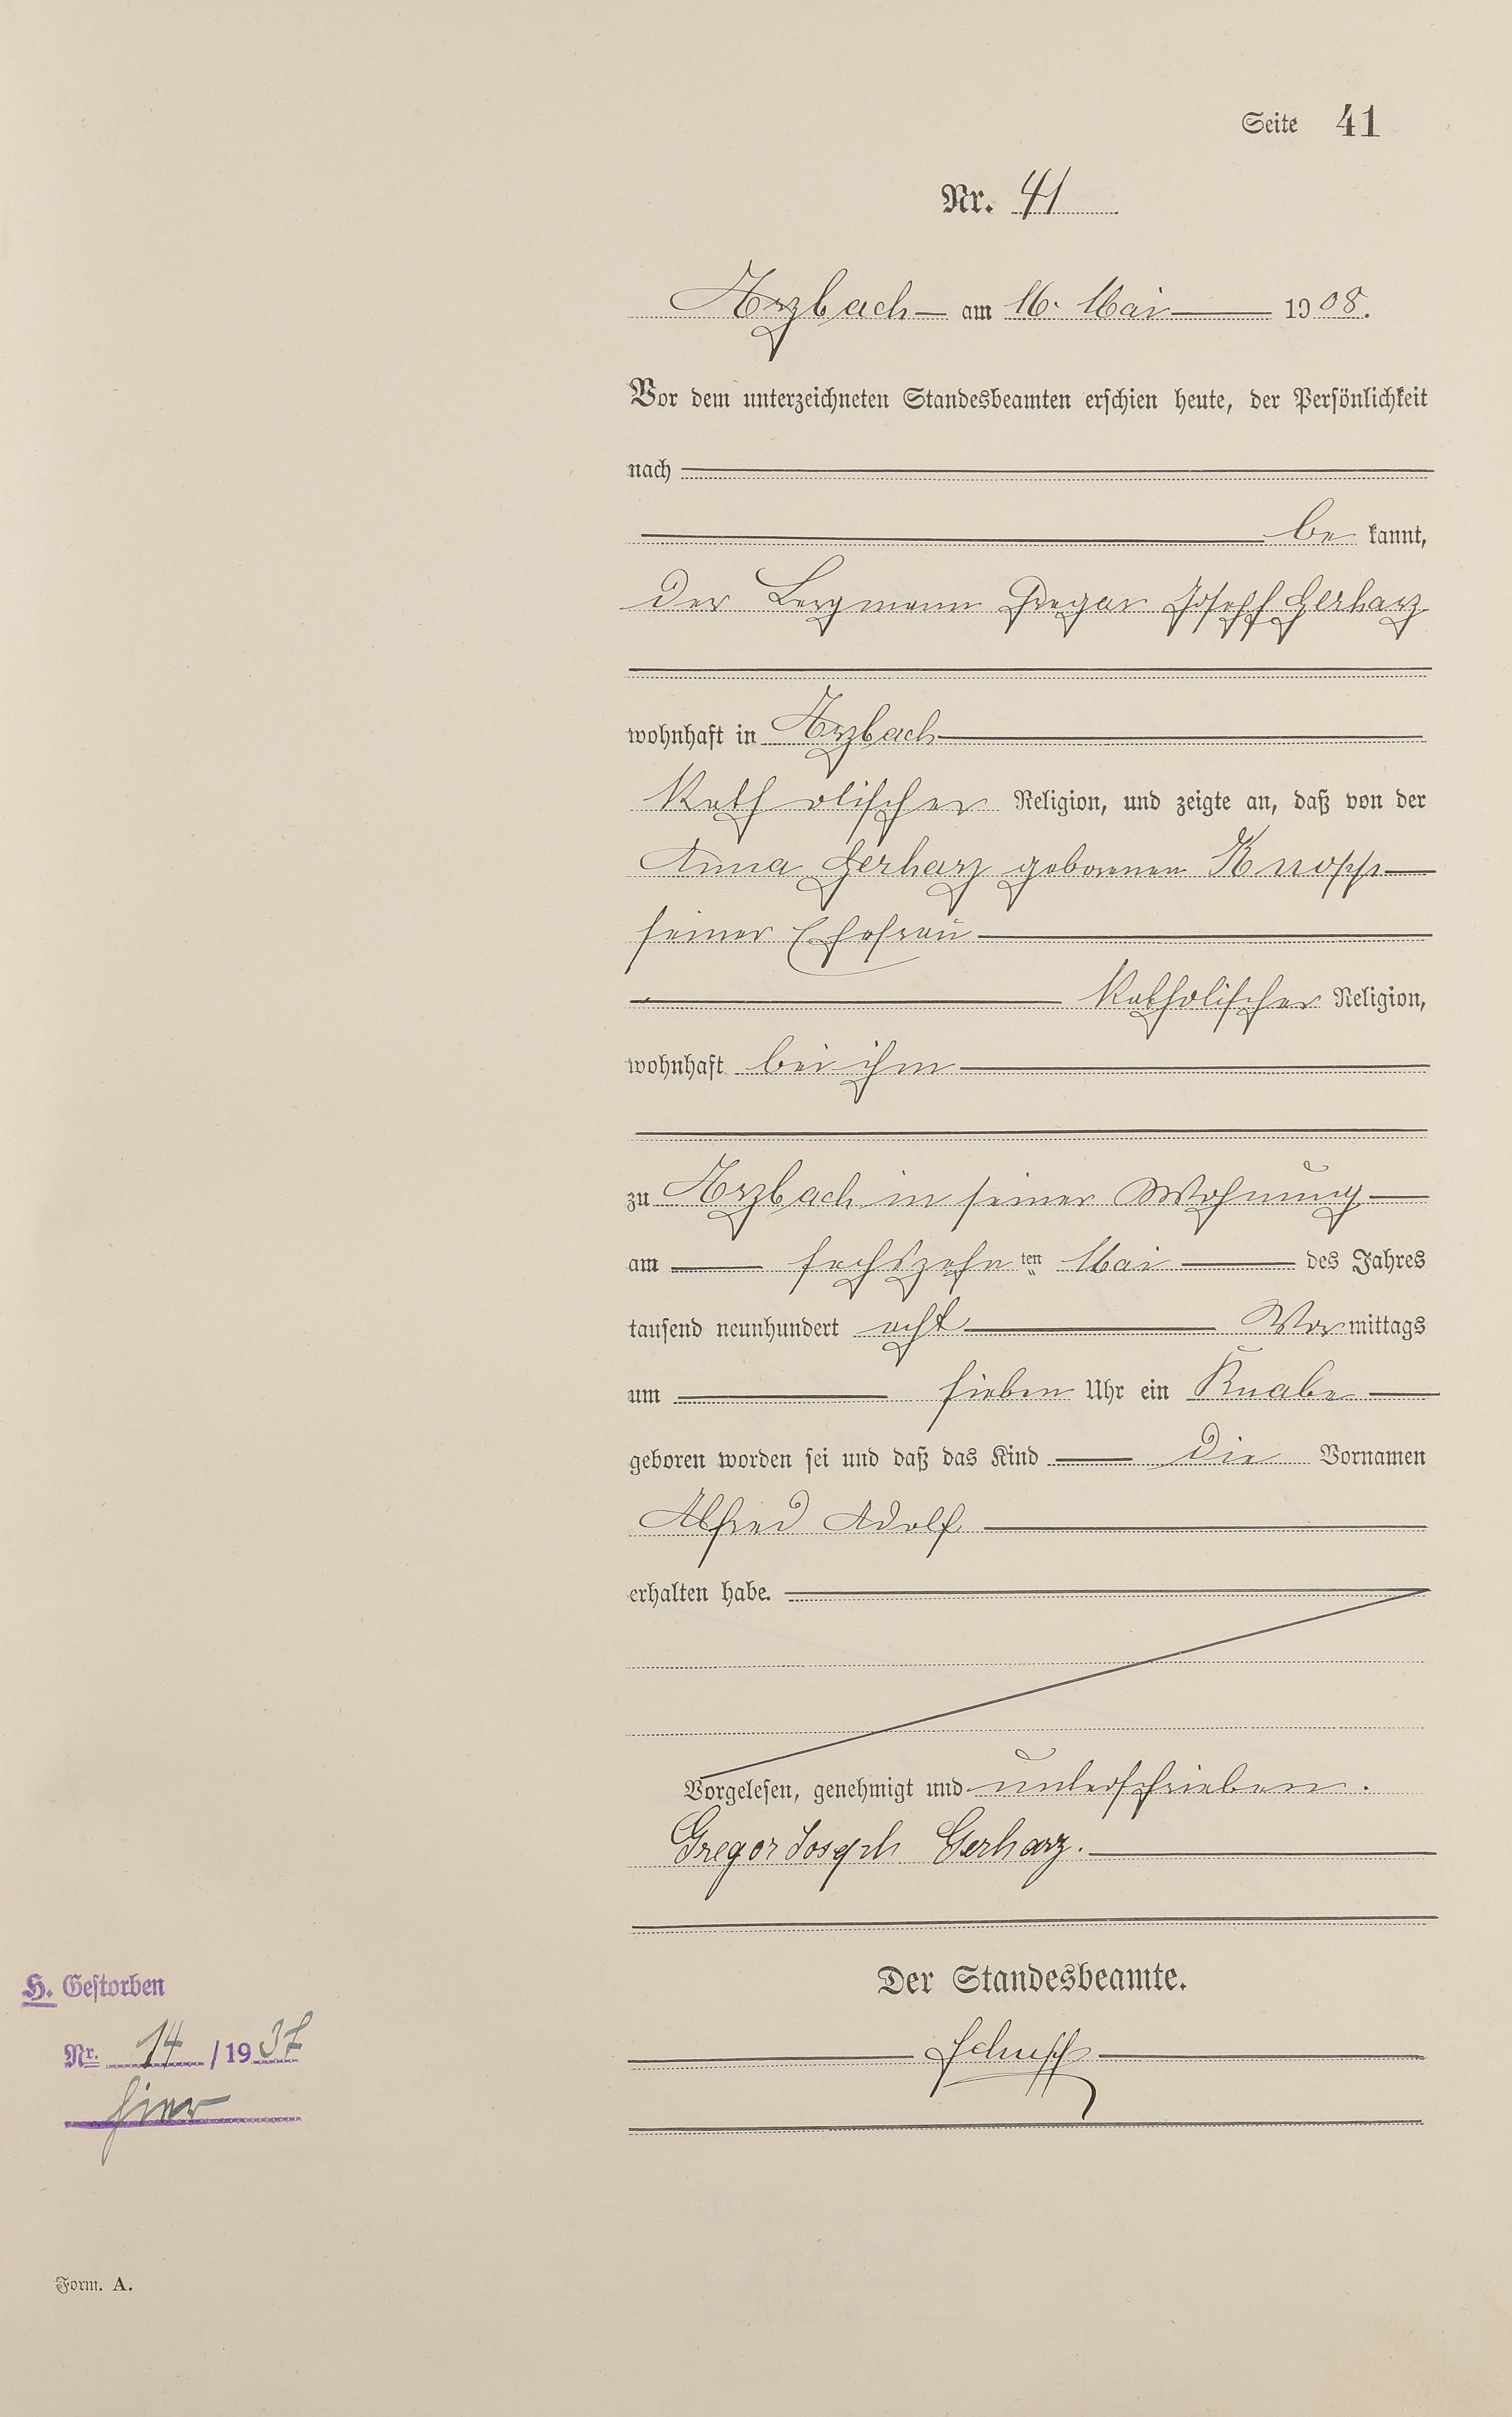 Seite 41
Nr. 41
Arzbach am 16. Mai 1908.
Vor dem unterzeichneten Standesbeamten erschien heute, der Persönlichkeit
nach
be kannt,
der Bergmann Gregor Joseph Gerharz
wohnhaft in Arzbach
katholischer Religion, und zeigte an, daß von der
Anna Gerharz geborenen Knopp
seiner Ehefrau
katholischer Religion,
wohnhaft bei ihm
zu Arzbach in seiner Wohnung
am sechszehn ten Mai des Jahres
tausend neunhundert acht Vormittags
um sieben Uhr ein Knabe
geboren worden sei und daß das Kind die Vornamen
Alfred Adolf
erhalten habe.
Vorgelesen, genehmigt und unterschrieben.
Gregor Joseph Gerharz.
Der Standesbeamte.
H. Gestorben
Nr. 14 /1937
hier
Form. A.